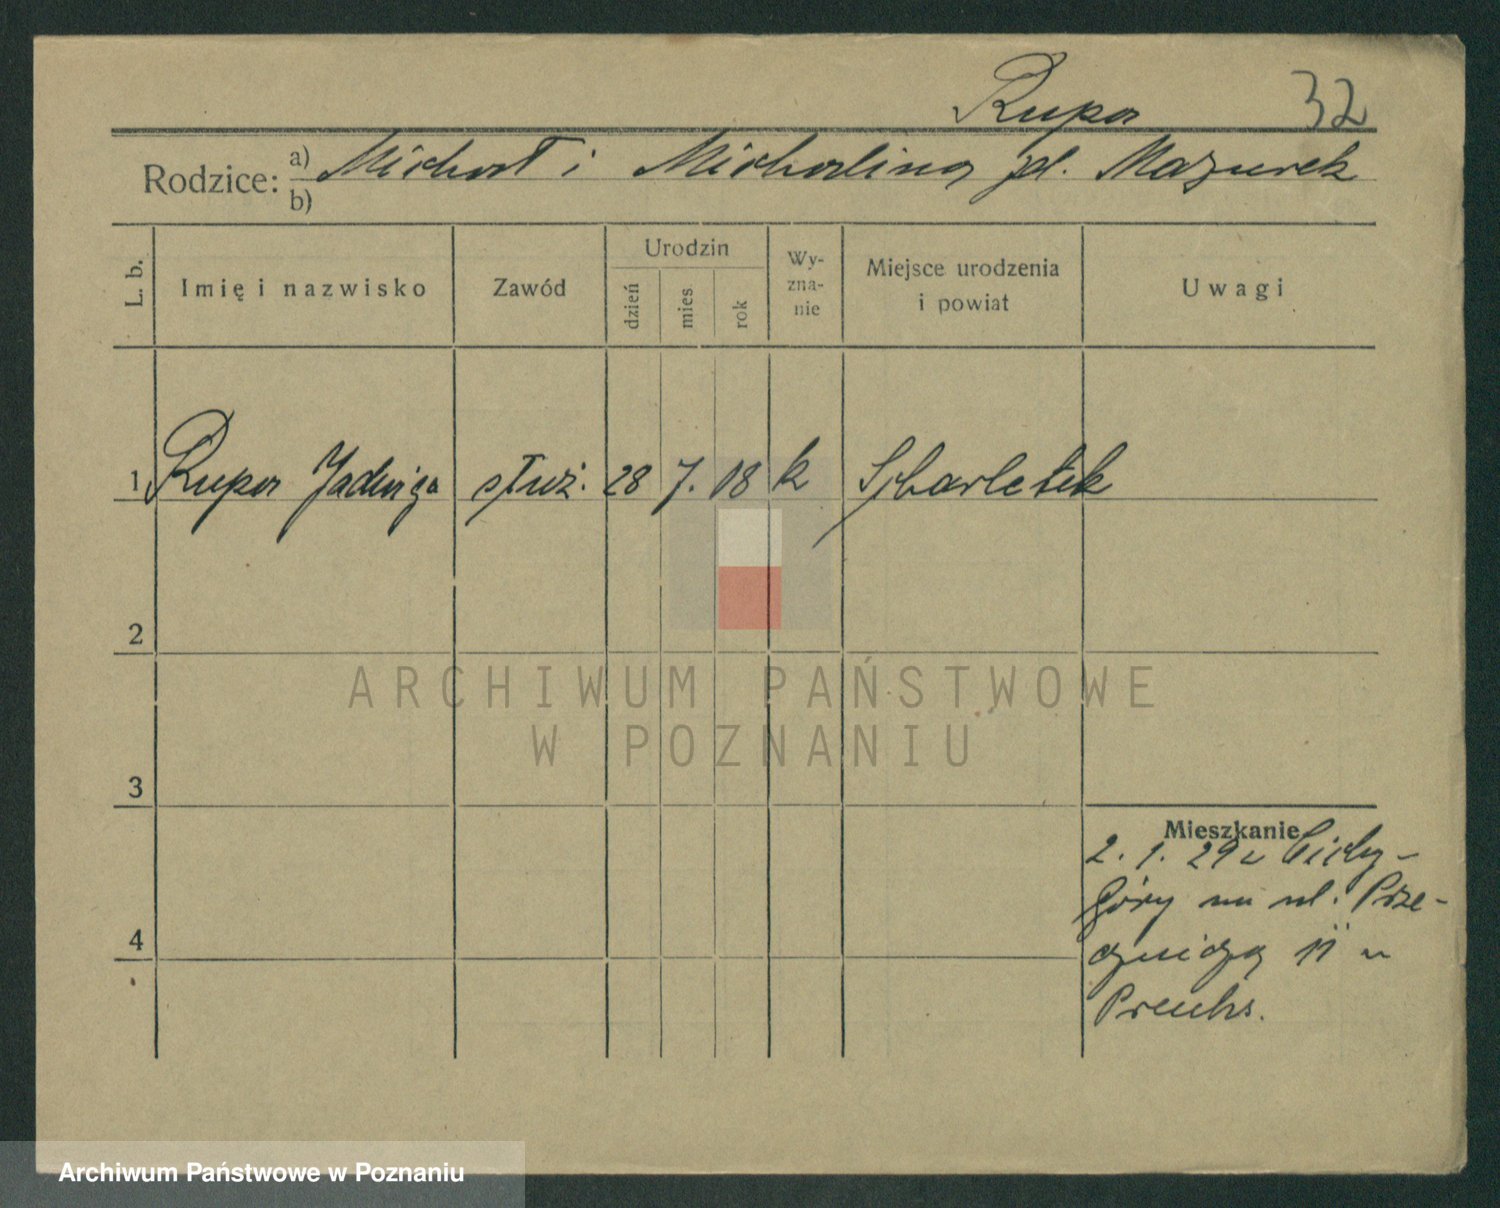 Rupa 32
Rodzice: a) Michał i Michalina zd. Mazurek
b)
L. b. Imię i nazwisko Zawód Urodzin dzień mies rok Wy-zna-nie Miejsce urodzenia i powiat Uwagi
1 Rupa Jadwiga służ. 28 7. 18 k
2
ARCHIWUM PAŃSTWOWE
W POZNANIU
3
4
Mieszkanie
2. 1. 29 z Cichy-
Góry na ul. Prze-
11 u
Archiwum Państwowe w Poznaniu